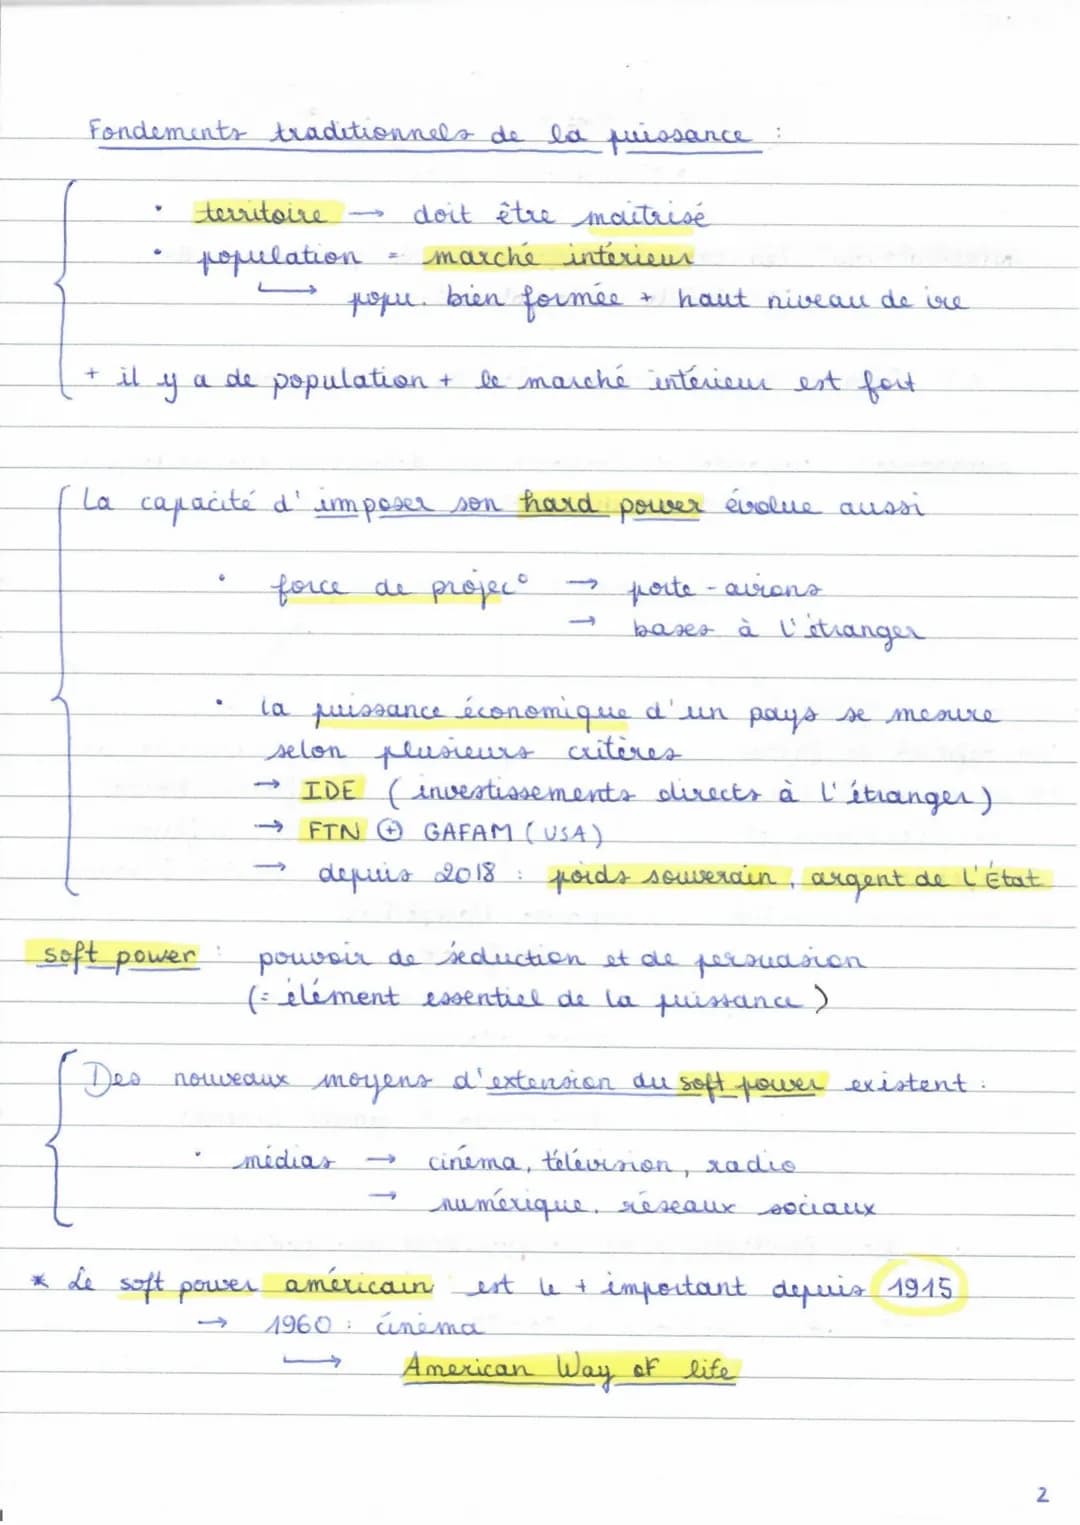 Fondements traditionnels de la puissance :
• territoire → doit être maitrisé
• population = marché intérieur
↳ popu. bien formée + haut niveau de vie
+ il y a de population + le marché intérieur est fort
La capacité d'imposer son hard power évolue aussi
• force de projec° → porte-avions
→ bases à l'étranger
• la puissance économique d'un pays se mesure
selon plusieurs critères
→ IDE (investissements directs à l'étranger)
→ FTN ⊕ GAFAM (USA)
→ depuis 2018 : poids souverain, argent de l'État
soft power : pouvoir de séduction et de persuasion
(= élément essentiel de la puissance)
Des nouveaux moyens d'extension du soft power existent :
• médias → cinéma, télévision, radio
→ numérique, réseaux sociaux
* Le soft power américain est le + important depuis 1915
→ 1960 : cinéma
↳ American Way of life
2